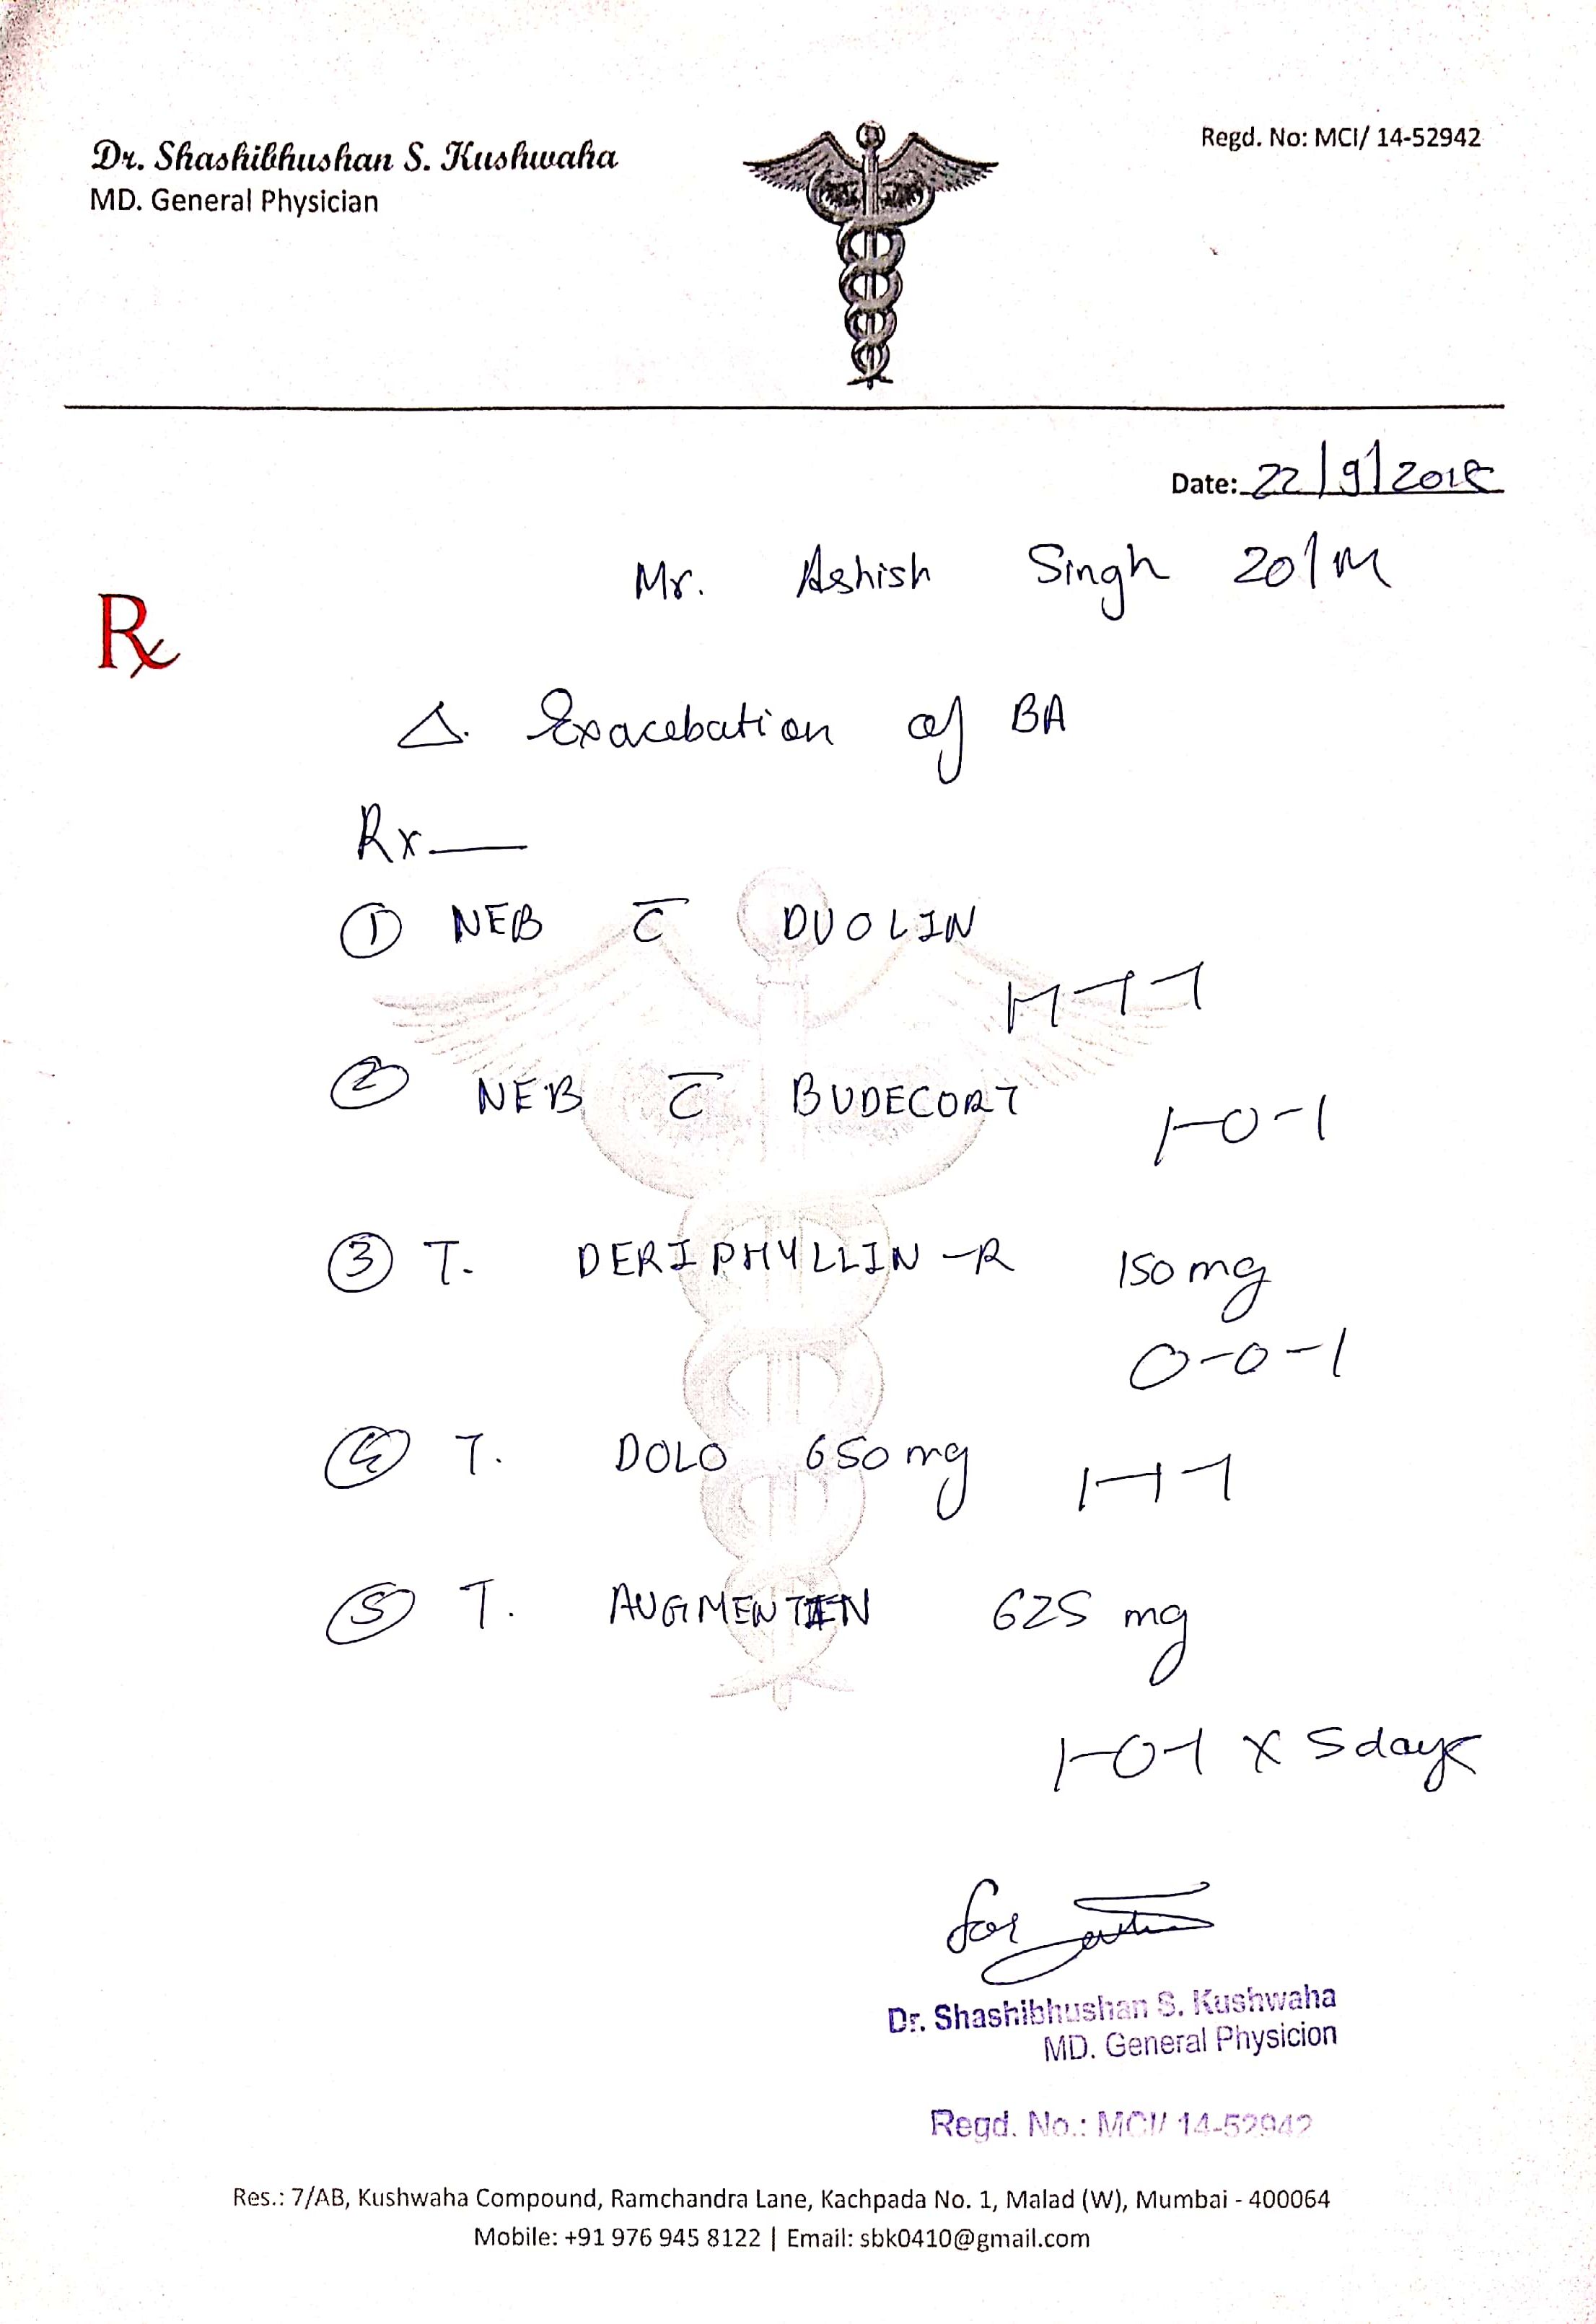 Dr. Shashibhushan S. Kushwaha
MD. General Physician
Regd. No: MCI/ 14-52942
Date: 22/9/2018
Mr. Ashish Singh 20/M
Rx
Δ. Exacebation of BA
Rx
① NEB c̅ DUOLIN
1-1-1
② NEB c̅ BUDECORT
1-0-1
③ T. DERIPHYLLIN-R 150mg
0-0-1
④ T. DOLO 650mg 1-1-1
⑤ T. AUGMENTIN 625 mg
1-0-1 x 5days
for
Dr. Shashibhushan S. Kushwaha
MD. General Physicion
Regd. No.: MCI/ 14-52942
Res.: 7/AB, Kushwaha Compound, Ramchandra Lane, Kachpada No. 1, Malad (W), Mumbai - 400064
Mobile: +91 976 945 8122 | Email: sbk0410@gmail.com